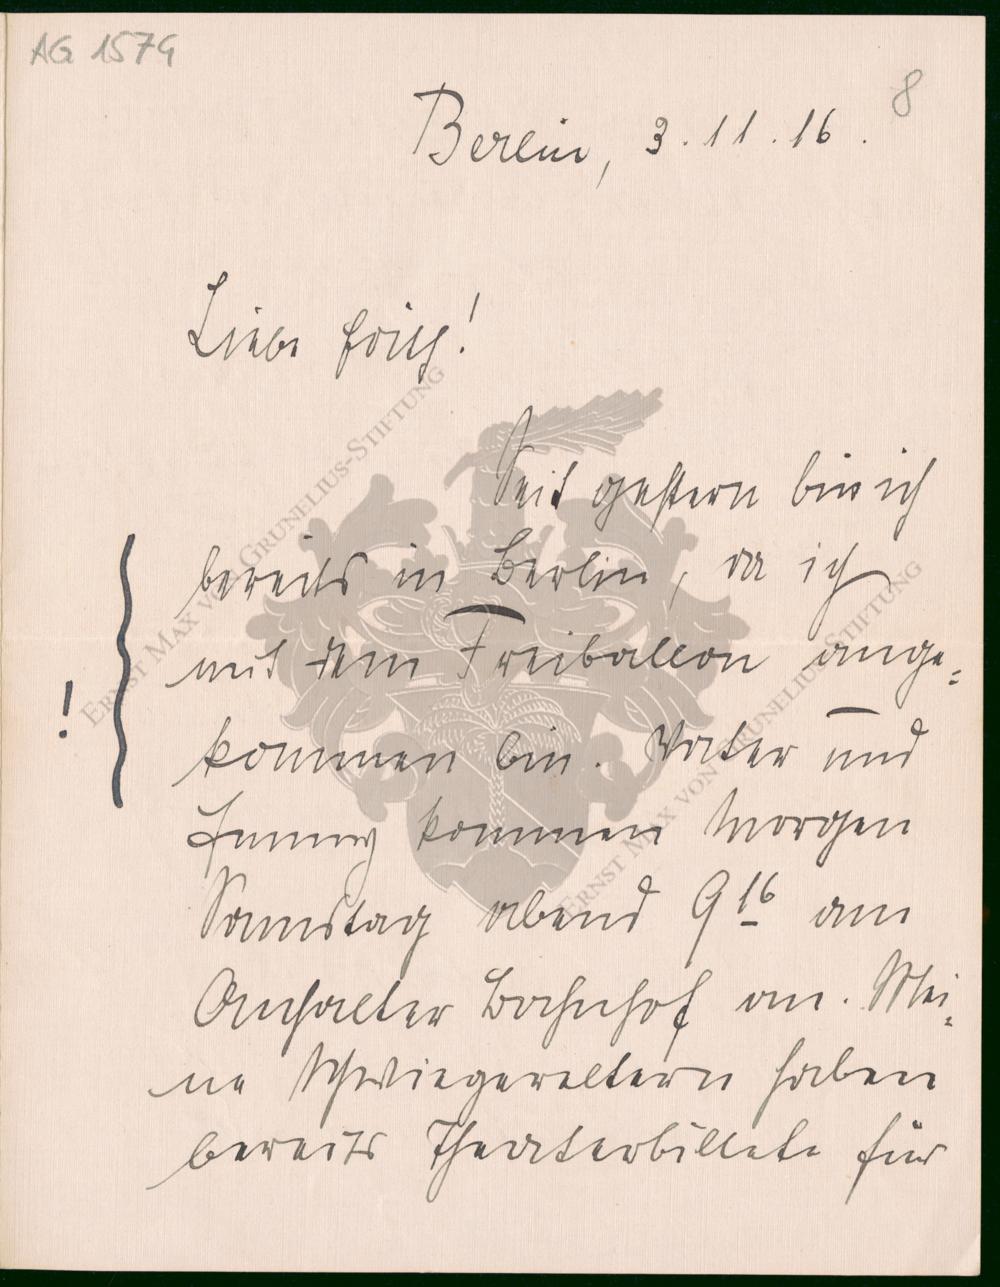 AG 1574
8
Berlin, 3.11.16.
Liebe
Seit gestern bin ich
bereits in Berlin, da ich
mit dem Freiballon ange=
kommen bin. Vater und
kommen morgen
Samstag abend 9 16 am
Anhalter Bahnhof an. Mei=
ne Schwiegereltern haben
bereits Theaterbillete für
!
ERNST MAX VON GRUNELIUS-STIFTUNG
ERNST MAX VON GRUNELIUS-STIFTUNG